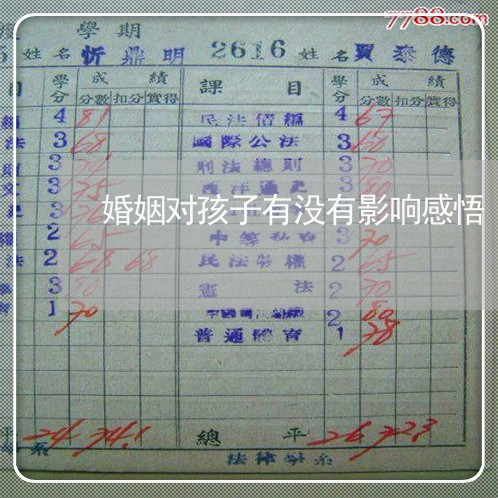 7788.com
學期
姓名 忻鼎明 2616 姓名 賈泰德
目 學分 成績 課目 學分 成績
分數 扣分 實得 分數 扣分 實得
4 81 民法債編 4 67
法 3 68 國際公法 3 60
3 刑法總則 3 70
3 75 西洋通史 3 80
婚姻对孩子有没有影响感悟
2 65 3 70
法 2 68 68 民法物權 2 65
3 80 憲法 2 70
1 70 2 80
普通體育 1 78
平 24 74.1 總平 26 72.3
系 法律學系